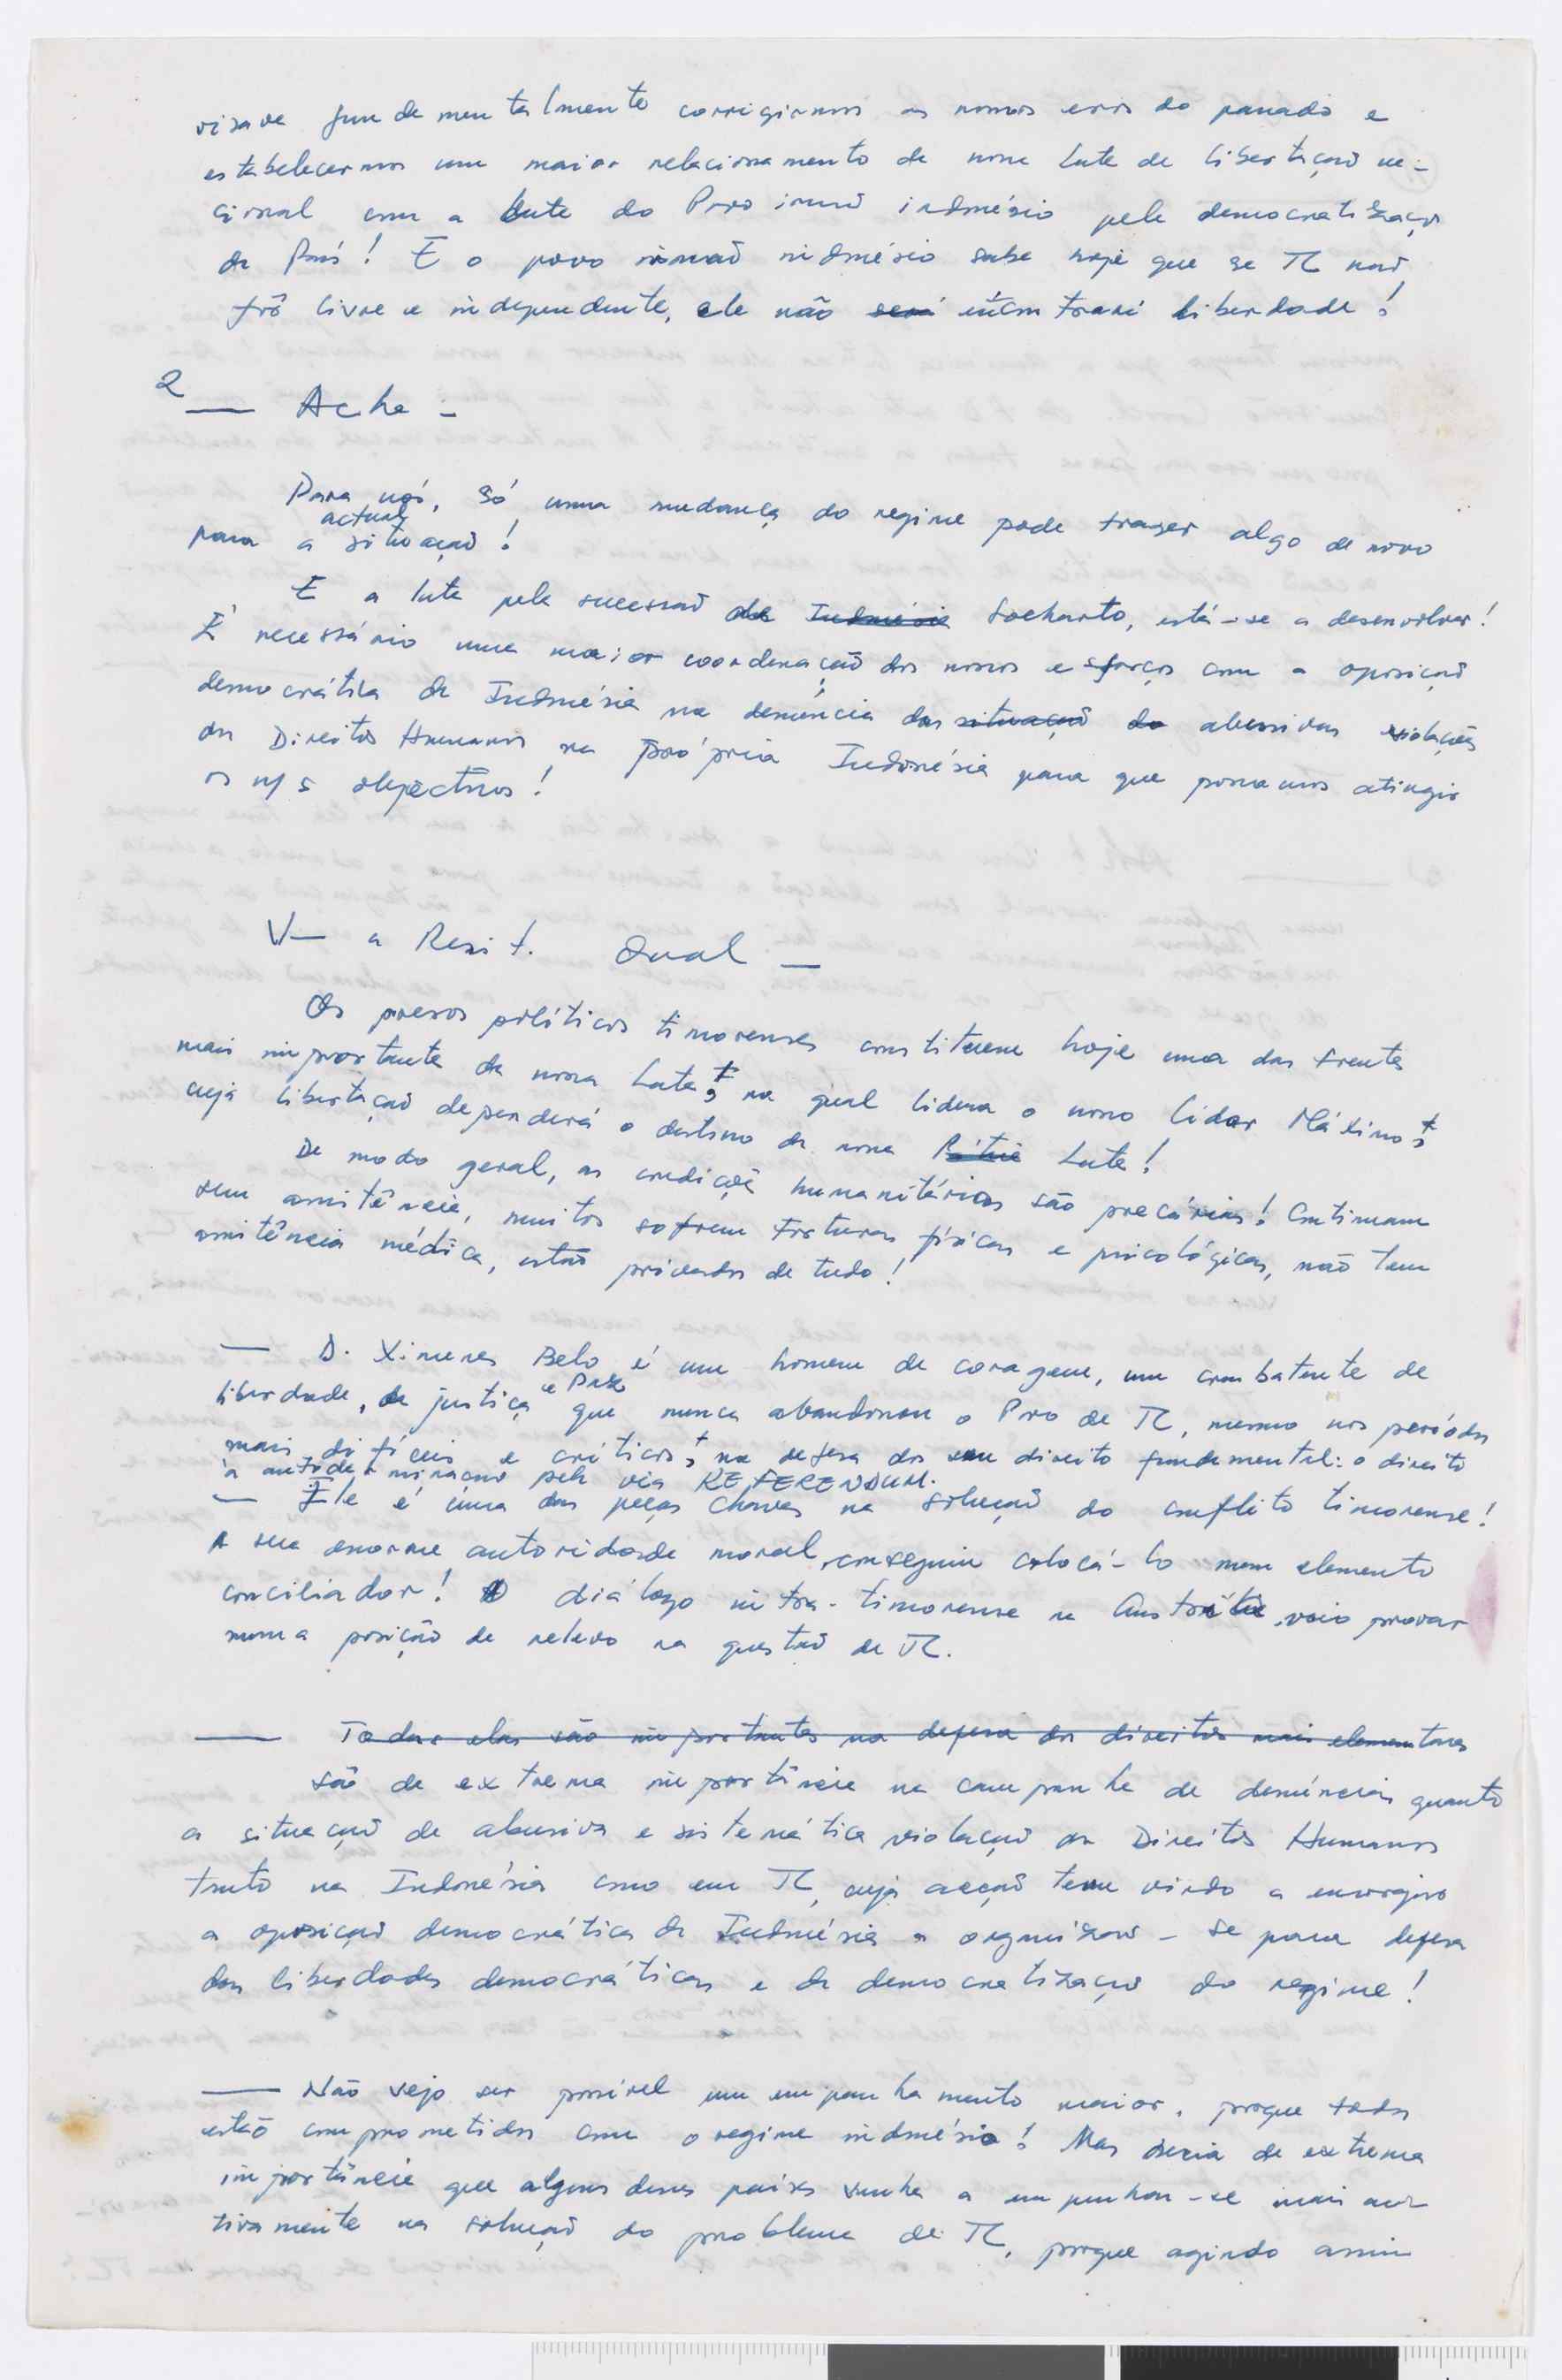 visave fundamentalmente corrigirmos os nossos erros do passado e
estabelecermos um maior relacionamento da nossa Luta de libertação na-
cional com a luta do Povo irmão indonésio pela democratização
do País! E o povo irmão indonésio sabe hoje que se TL não
fôr livre e independente, ele não será encontrará liberdade!
2
— Acha -
Para nós, só uma mudança do regime pode trazer algo de novo
para a actual situação!
E a luta pela sucessão da Indonésia Soeharto, está-se a desenvolver!
É necessário uma maior coordenação dos nossos esforços com a oposição
democrática da Indonésia na denúncia das situação do abusivas violações
dos Direitos Humanos na própria Indonésia para que possamos atingir
os n/s objectivos!
V— a Resist. Qual —
Os presos políticos timorenses constituem hoje uma das frentes
mais importante da nossa Luta, na qual lidera o nosso Líder Máximo,
cuja libertação dependerá o destino da nossa Pátria Luta!
De modo geral, as condições humanitárias são precárias! Continuam
sem assistência, muitos sofrem torturas físicas e psicológicas, não tem
assistência médica, estão privados de tudo!
— D. Ximenes Belo é um homem de coragem, um combatente de
liberdade, de justiça e Paz que nunca abandonou o Povo de TL, mesmo nos períodos
mais difíceis e críticos, na defesa do seu direito fundamental: o direito
à autodeterminação pela via REFERENDUM.
— Ele é uma das peças chaves na solução do conflito timorense!
A sua enorme autoridade moral, conseguiu colocá-lo num elemento
conciliador! O diálogo intra-timorense na Austrália, veio provar
numa posição de relevo na questão de TL.
— Todas elas são importantes na defesa dos direitos mais elementares
São de extrema importância na campanha de denúncias quanto
a situação de abusiva e sistemática violação dos Direitos Humanos
tanto na Indonésia como em TL, cuja acção tem vindo a encorajar
a oposição democrática da Indonésia a organizar-se para defesa
das liberdades democráticas e da democratização do regime!
— Não vejo ser possível um empenhamento maior, porque todos
estão comprometidos com o regime indonésio! Mas seria de extrema
importância que alguns desses países venha a empenhar-se mais ac-
tivamente na solução do problema de TL, porque agindo assim